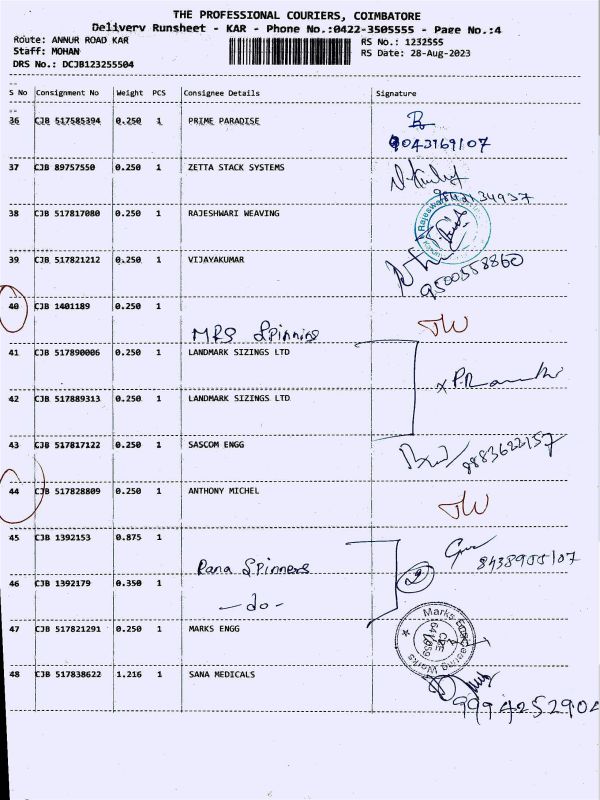 THE PROFESSIONAL COURIERS, COIMBATORE
Delivery Runsheet - KAR - Phone No.:0422-3505555 - Page No.:4
Route: ANNUR ROAD KAR
RS No.: 1232555
Staff: MOHAN
RS Date: 28-Aug-2023
DRS No.: DCJB123255504
S No Consignment No Weight PCS Consignee Details Signature
36 CJB 517585394 0.250 1 PRIME PARADISE
9043169107
37 CJB 89757550 0.250 1 ZETTA STACK SYSTEMS
38 CJB 517817080 0.250 1 RAJESHWARI WEAVING
39 CJB 517821212 0.250 1 VIJAYAKUMAR
9500558860
40 CJB 1401189 0.250 1
MRS Spinning
41 CJB 517890006 0.250 1 LANDMARK SIZINGS LTD
42 CJB 517889313 0.250 1 LANDMARK SIZINGS LTD
43 CJB 517817122 0.250 1 SASCOM ENGG
8883622157
44 CJB 517828809 0.250 1 ANTHONY MICHEL
45 CJB 1392153 0.875 1
Rana Spinners
46 CJB 1392179 0.350 1
-do-
47 CJB 517821291 0.250 1 MARKS ENGG
48 CJB 517838622 1.216 1 SANA MEDICALS
9994252904